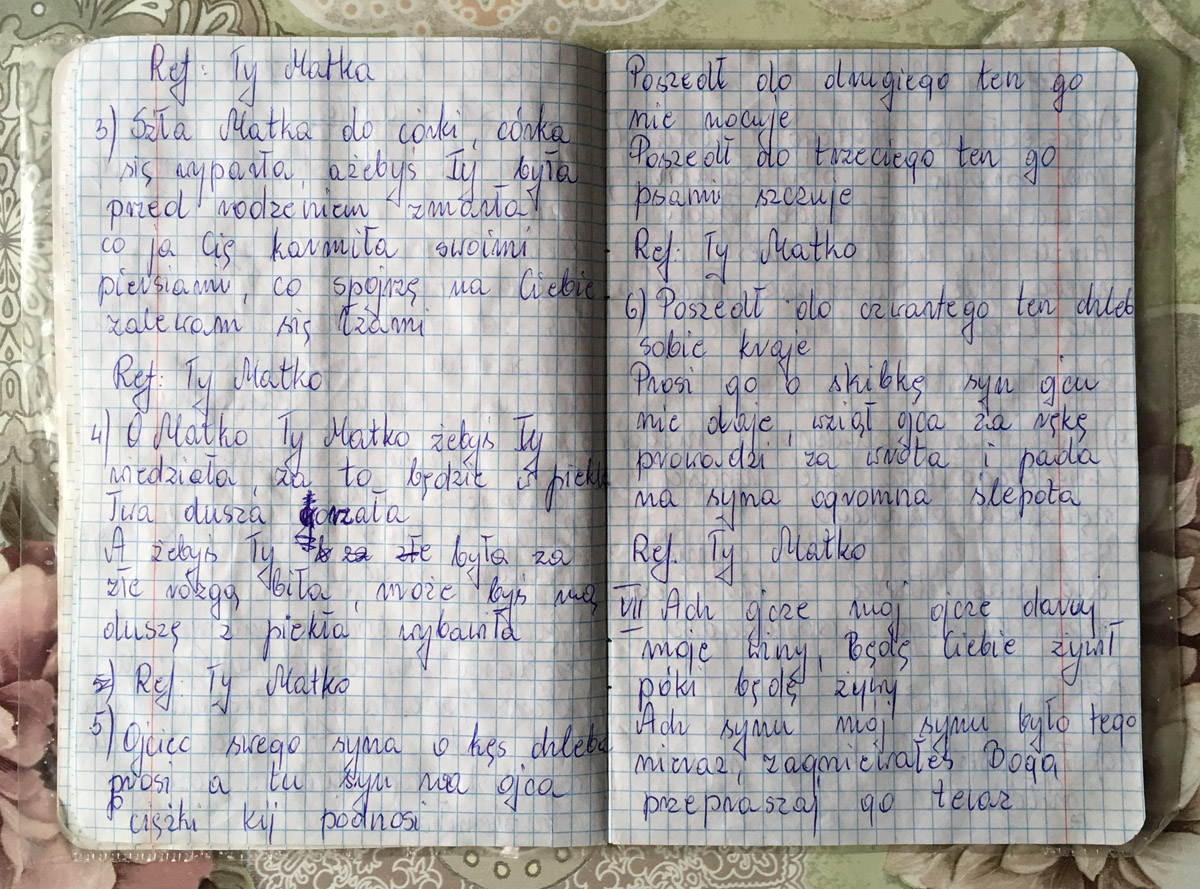 Ref: Ty Matka
3) Szła Matka do córki, córka
się wyparła, ażebyś Ty była
przed rodzeniem zmarła
co ja Cię karmiła swoimi
piersiami, co spojrzę na Ciebie
zalewam się łzami
Ref: Ty Matko
4) O Matko Ty Matko żebyś Ty
niedziała, za to będzie w piekle
Twa dusza gorzała
A żebyś Ty była za
złe rózgą biła, może byś mą
duszę z piekła wybawiła
Ref: Ty Matko
5) Ojciec swego syna o kęs chleba
prosi a tu syn na ojca
ciężki kij podnosi
Poszedł do drugiego ten go
nie nocuje
Poszedł do trzeciego ten go
psami szczuje
Ref: Ty Matko
6) Poszedł do czwartego ten chleb
sobie kroje
Prosi go o skibkę syn ojcu
nie daje, wziął ojca za rękę
prowadzi za wrota i pada
na syna ogromna ślepota
Ref. Ty Matko
VII Ach ojcze mój ojcze daruj
moje winy, Będę Ciebie żywił
póki będę żywy
Ach synu mój synu było tego
nieraz, zagniewałeś Boga
przepraszaj go teraz